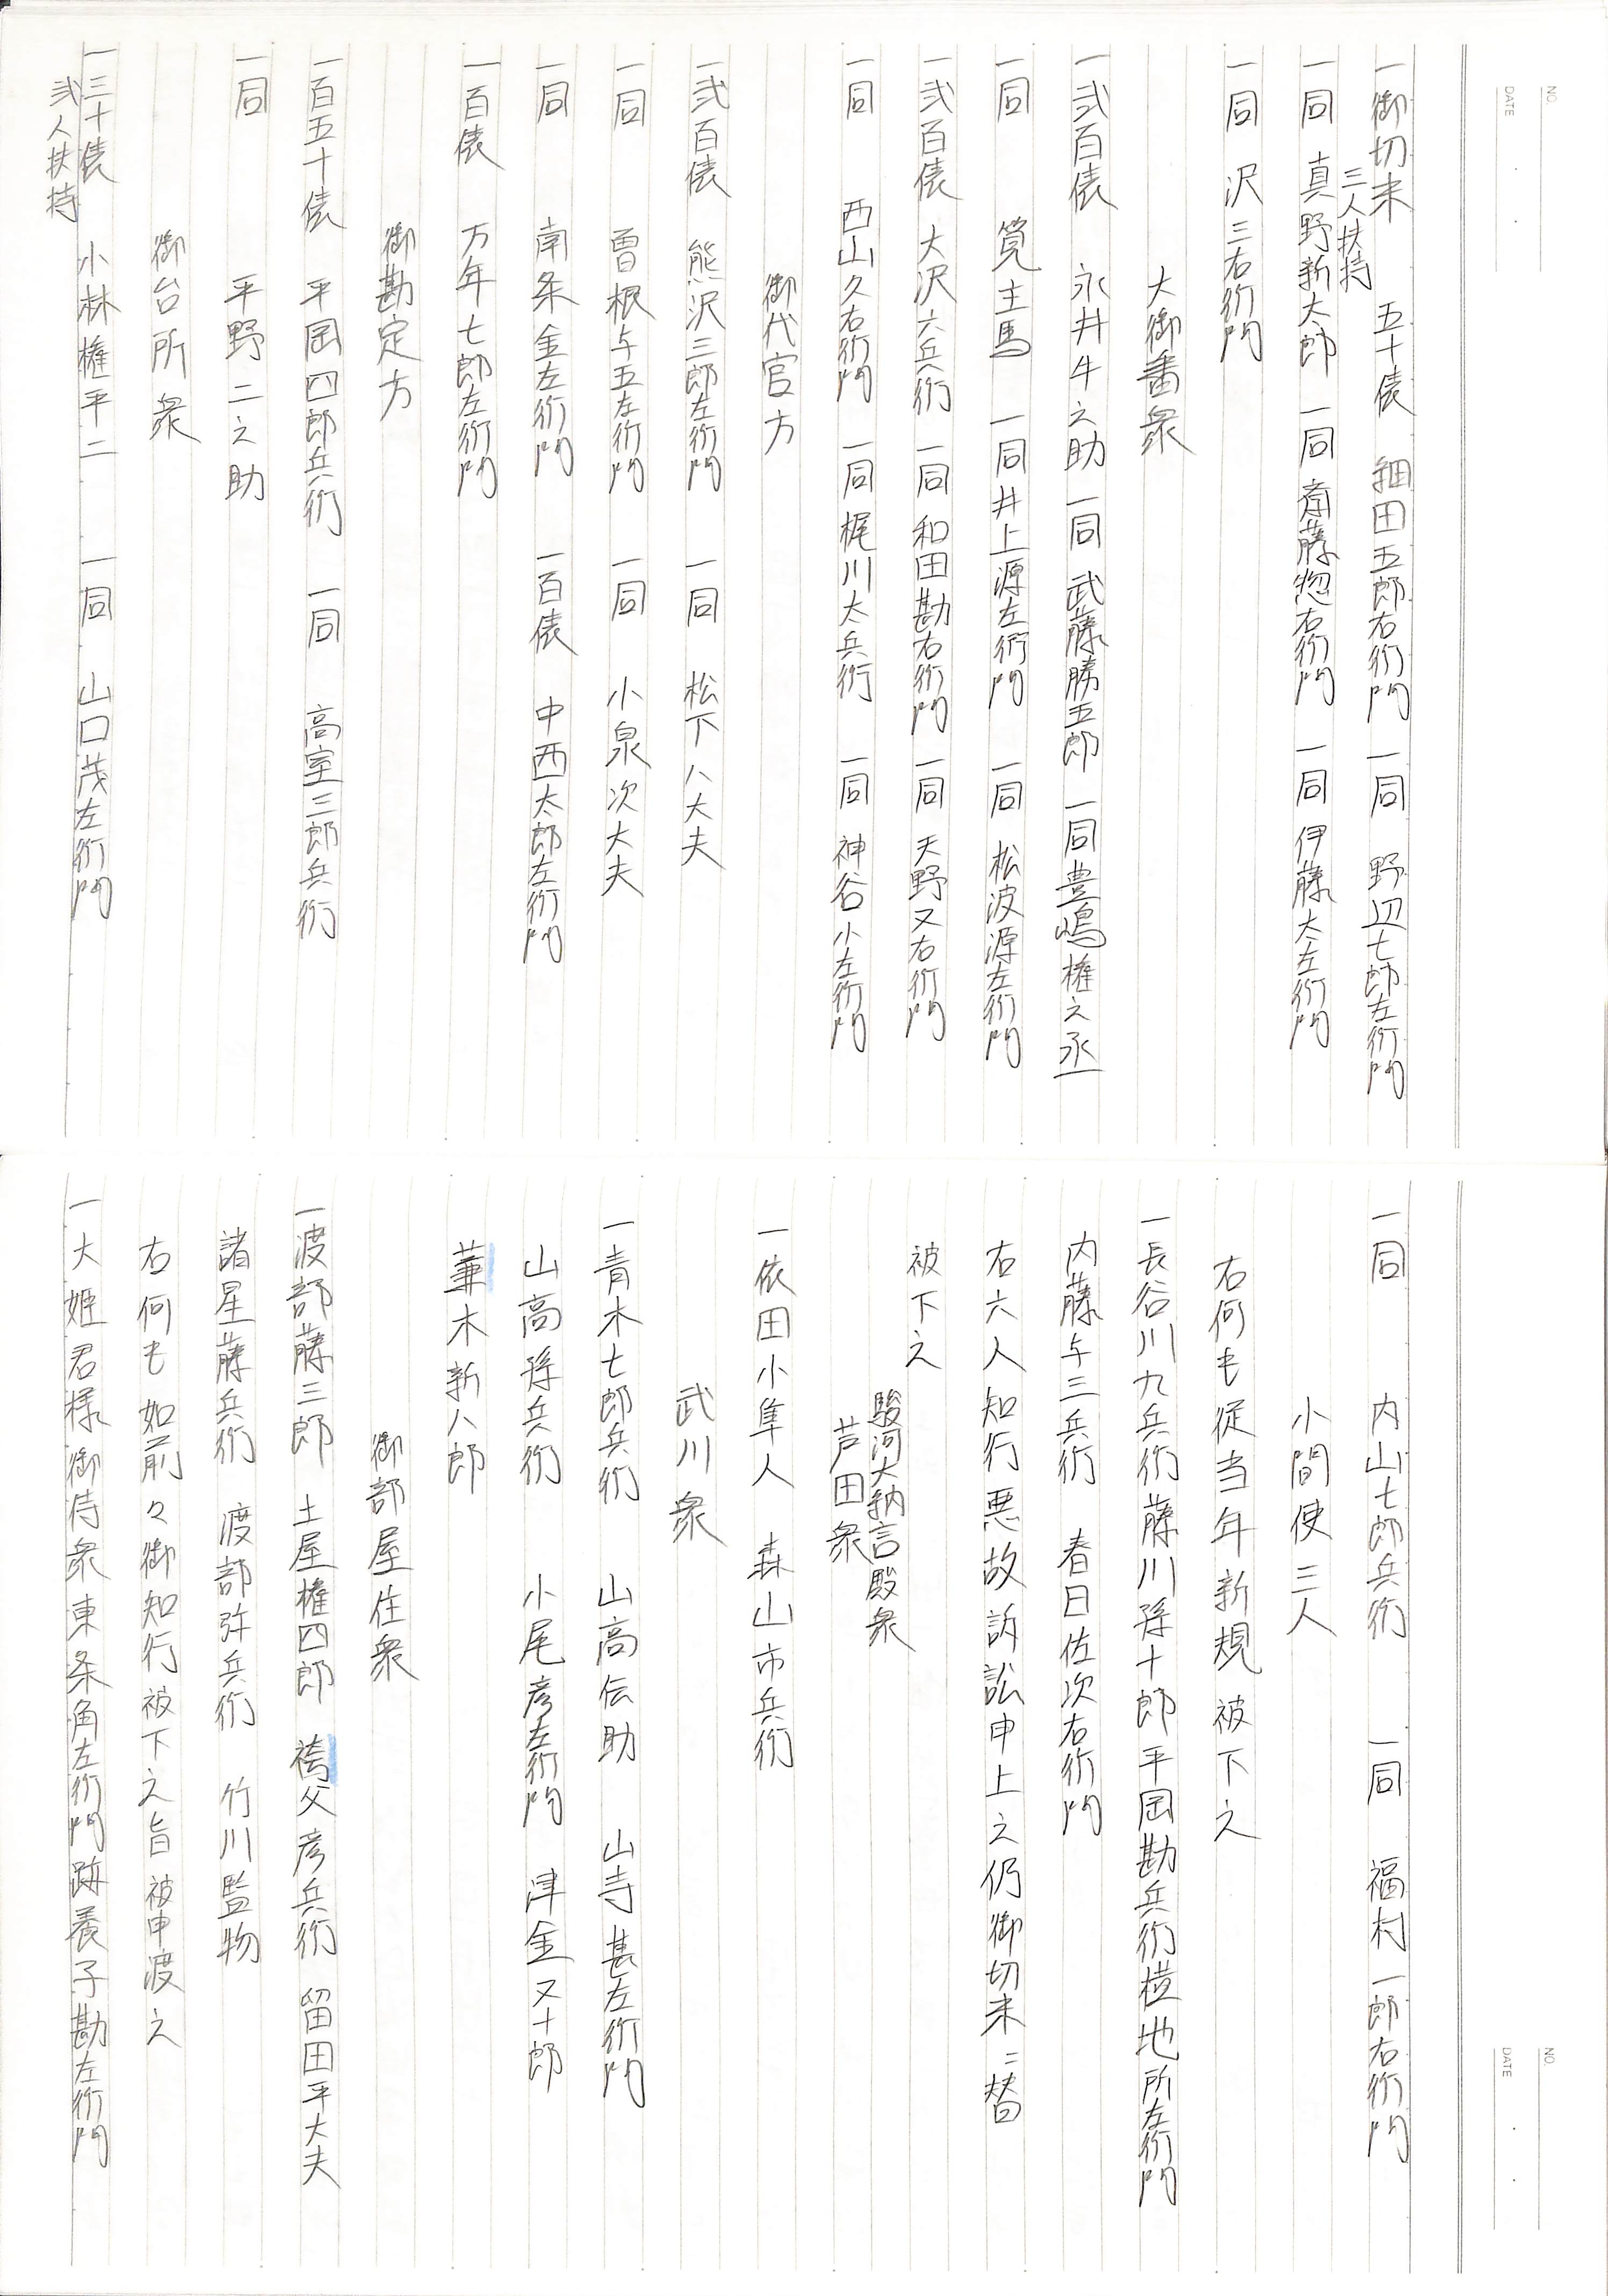 NO.
DATE
一御切米　五十俵　細田五郎右衛門　一同　野辺七郎左衛門
三人扶持
一同　真野新太郎　一同　斉藤惣右衛門　一同　伊藤太左衛門
一同　沢三右衛門
大御番衆
一弐百俵　永井牛之助　一同　武藤勝五郎　一同豊嶋権之丞
一同　筧主馬　一同井上源左衛門　一同　松波源左衛門
一弐百俵　大沢六兵衛　一同　和田勘右衛門　一同　天野又右衛門
一同　西山久右衛門　一同　梶川太兵衛　一同　神谷小左衛門
御代官方
一弐百俵　熊沢三郎左衛門　一同　松下八大夫
一同　曽根与五左衛門　一同　小泉次大夫
一同　南条金左衛門　一百俵　中西太郎左衛門
一百俵　万年七郎左衛門
御勘定方
一百五十俵　平岡四郎兵衛　一同　高室三郎兵衛
一同　平野二之助
御台所衆
一三十俵　小林権平二　一同　山口茂左衛門
弐人扶持
NO.
DATE
一同　内山七郎兵衛　一同　福村一郎右衛門
小間使三人
右何も従当年新規被下之
一長谷川九兵衛藤川孫十郎平岡勘兵衛桜地所左衛門
内藤与三兵衛　春日佐次右衛門
右六人知行悪故訴訟申上之仍御切米ニ替
被下之
駿河大納言殿衆
芦田衆
一依田小隼人　森山市兵衛
武川衆
一青木七郎兵衛　山高伝助　山寺甚左衛門
山高孫兵衛　小尾彦左衛門　津金又十郎
薬木新八郎
御部屋住衆
一渡部藤三郎　土屋権四郎　袴父彦兵衛　留田平大夫
諸星藤兵衛　渡部弥兵衛　竹川監物
右何も如前々御知行被下之旨被申渡之
一大姫君様御侍衆東条角左衛門跡養子勘左衛門